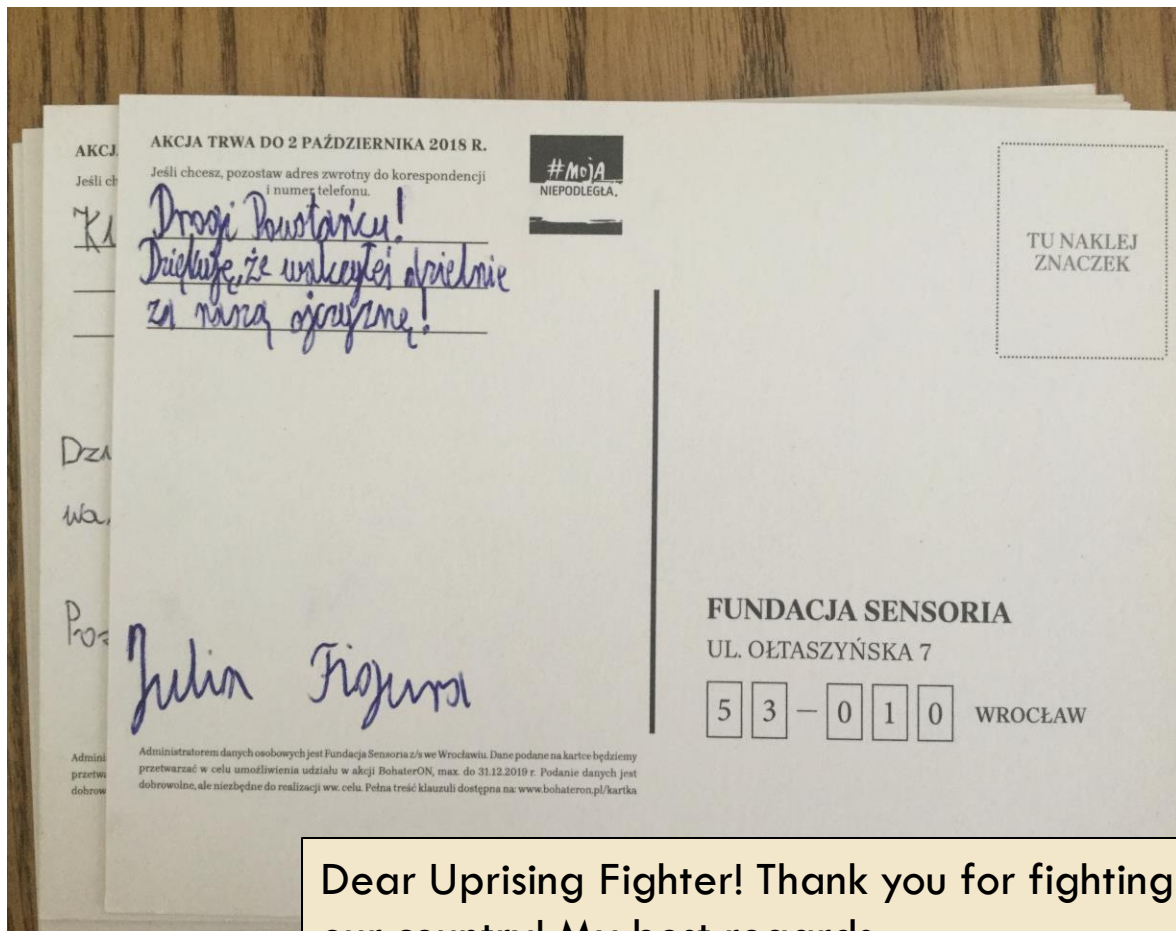 AKCJ
Jeśli ch
K1
Dzi
wa,
Poz
Admini
przetwa
dobrow
AKCJA TRWA DO 2 PAŹDZIERNIKA 2018 R.
Jeśli chcesz, pozostaw adres zwrotny do korespondencji
i numer telefonu.
Drogi Powstańcu!
Dziękuję, że walczyłeś dzielnie
za naszą ojczyznę!
Julia Figura
Administratorem danych osobowych jest Fundacja Sensoria z/s we Wrocławiu. Dane podane na kartce będziemy
przetwarzać w celu umożliwienia udziału w akcji BohaterON, max. do 31.12.2019 r. Podanie danych jest
dobrowolne, ale niezbędne do realizacji ww. celu. Pełna treść klauzuli dostępna na: www.bohateron.pl/kartka
#MOJA
NIEPODLEGŁA.
TU NAKLEJ
ZNACZEK
FUNDACJA SENSORIA
UL. OŁTASZYŃSKA 7
53-010 WROCŁAW
Dear Uprising Fighter! Thank you for fighting
our country! My best regards